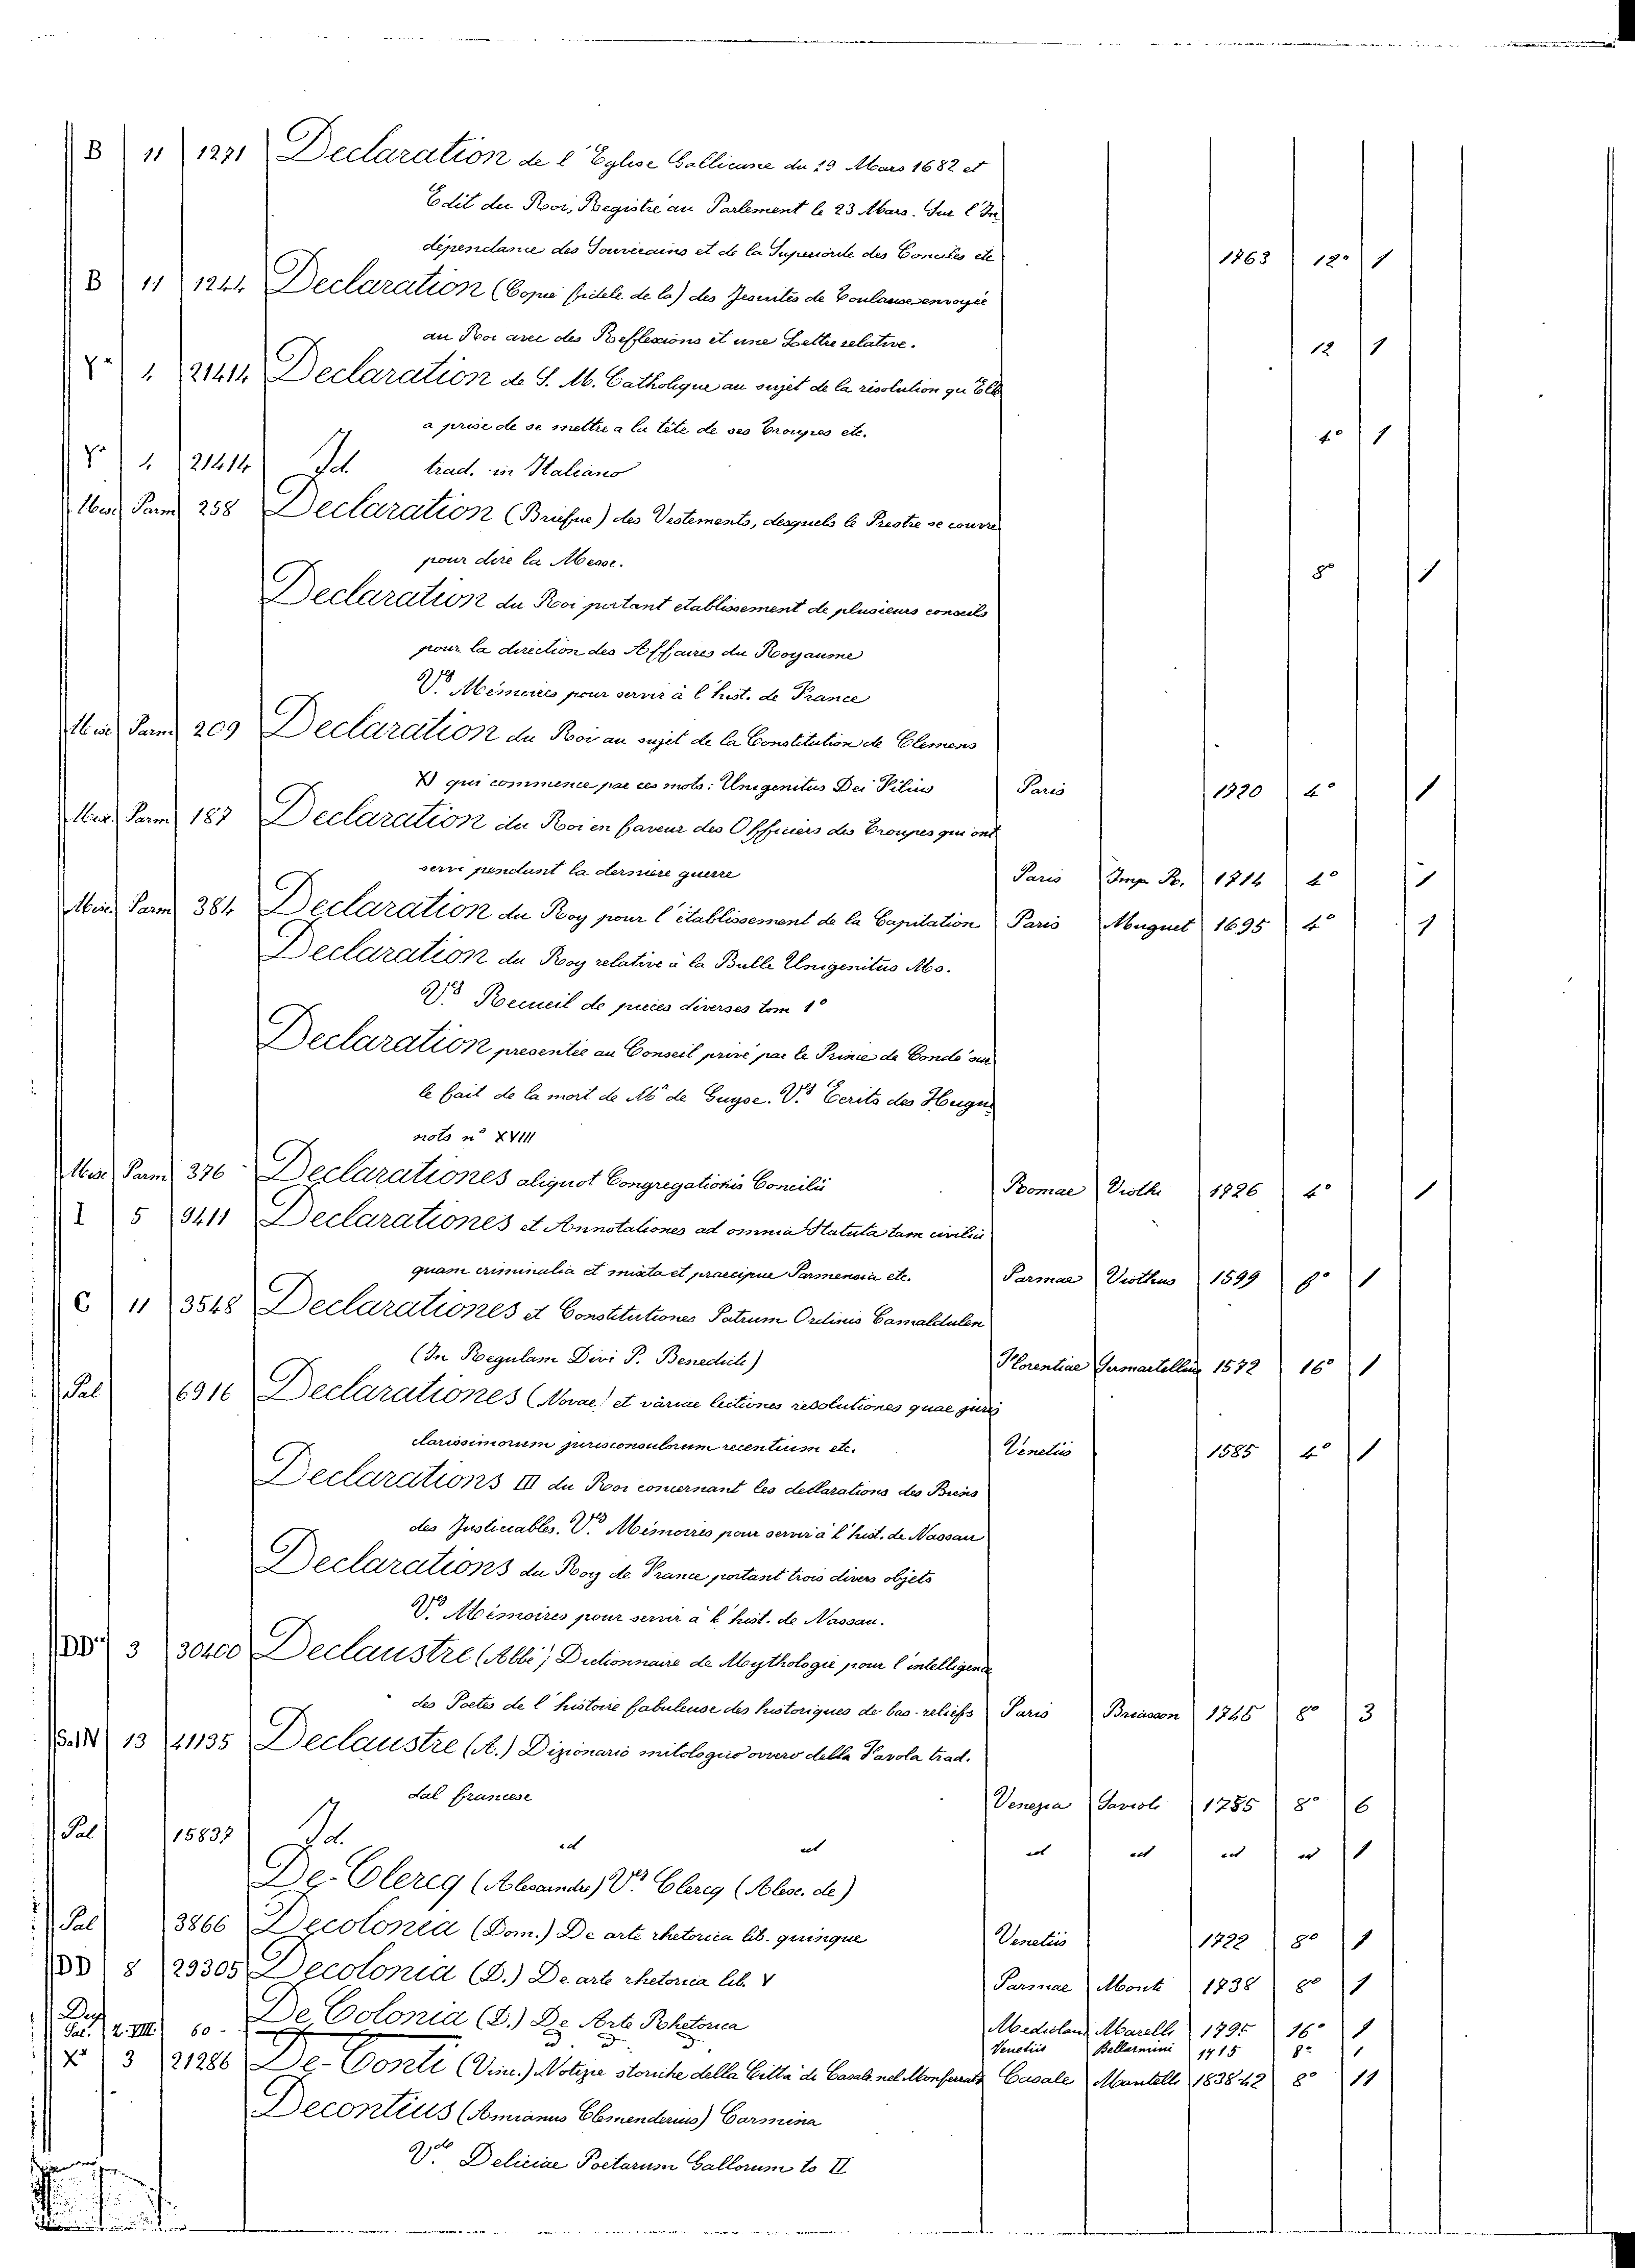 B 11 1271 Declaration de l'Eglise Gallicane du 19 Mars 1682 et
Edit du Roi, Registré au Parlement le 23 Mars. Sur l'In
dépendance des Souverains et de la Superiorite des Conciles etc 1763 12° 1
B 11 1244 Declaration (Copie fidele de la) des Jesuites de Toulouse envoyée
au Roi avec des Reflexions et une Lettre relative. 12 1
4 21414 Declaration de S. M. Catholique au sujet de la résolution qu'Elle
a prise de se mettre a la tête de ses Troupes etc. 4° 1
4 21414 Id. trad. in Italiano
Misc Parm 258 Declaration (Briefue) des Vestements, desquels le Prestre se couvre
pour dire la Messe. 8° 1
Declaration du Roi portant etablissement de plusieurs conseils
pour la direction des Affaires du Royaume
V. Mémoires pour servir à l'hist. de France
Misc Parm 209 Declaration du Roi au sujet de la Constitution de Clemens
XI qui commence par ces mots: Unigenitus Dei Filius Paris 1720 4° 1
Misc. Parm 187 Declaration du Roi en faveur des Officiers des Troupes qui ont
servi pendant la derniere guerre Paris Imp R. 1714 4° 1
Misc Parm 384 Declaration du Roy pour l'établissement de la Capitation Paris Muguet 1695 4° 1
Declaration du Roy relative à la Bulle Unigenitus Ms.
V. Recueil de pieces diverses tom 1°
Declaration presentée au Conseil privé par le Prince de Condé sur
le fait de la mort de M. de Guyse. V. Ecrits des Hugue
nots n° XVIII
Misc Parm 376 Declarationes aliquot Congregationis Concilii Romae Viothi 1726 4° 1
I 5 9411 Declarationes et Annotationes ad omnia Statuta tam civilia
quam criminalia et mixta et praecipue Parmensia etc. Parmae Viothus 1599 1
C 11 3548 Declarationes et Constitutiones Patrum Ordinis Camaldulen
(In Regulam Divi P. Benedicti) Florentiae Sermartellius 1572 16° 1
Pal 6916 Declarationes (Novae) et variae lectiones resolutiones quae juris
clarissimorum jurisconsultorum recentium etc. Venetiis 1585 4° 1
Declarations III du Roi concernant les declarations des Biens
des Justiciables. V. Mémoires pour servir à l'hist. de Nassau
Declarations du Roy de France portant trois divers objets
V. Mémoires pour servir à l'hist. de Nassau.
DD 3 30400 Declaustre (Abbé) Dictionnaire de Mythologie pour l'intelligence
des Poetes de l'histoire fabuleuse des historiques de bas-reliefs Paris Briasson 1745 8° 3
Sal. N 13 41135 Declaustre (A.) Dizionario mitologico ovvero della Favola trad.
dal francese Venezia Savioli 1785 8° 6
Pal 15837 Id. id id id id id id 1
De-Clercq (Alexandre) V. Clercq (Alex. de)
Pal 3866 Decolonia (Dom.) De arte rhetorica lib. quinque Venetiis 1722 8° 1
DD 8 29305 Decolonia (D.) De arte rhetorica lib. V Parmae Monti 1738 8° 1
Pal. 2. VIII 60 De Colonia (D.) De Arte Rhetorica Mediolani Marelli 16° 1
" " " Venetiis Bellarmini 1715 8° 1
X 3 21286 De-Conti (Vinc.) Notizie storiche della Città di Casale nel Monferrato Casale Mantelli 1838-42 8° 11
Decontius (Amianus Clemenderius) Carmina
V. Deliciae Poetarum Gallorum to II